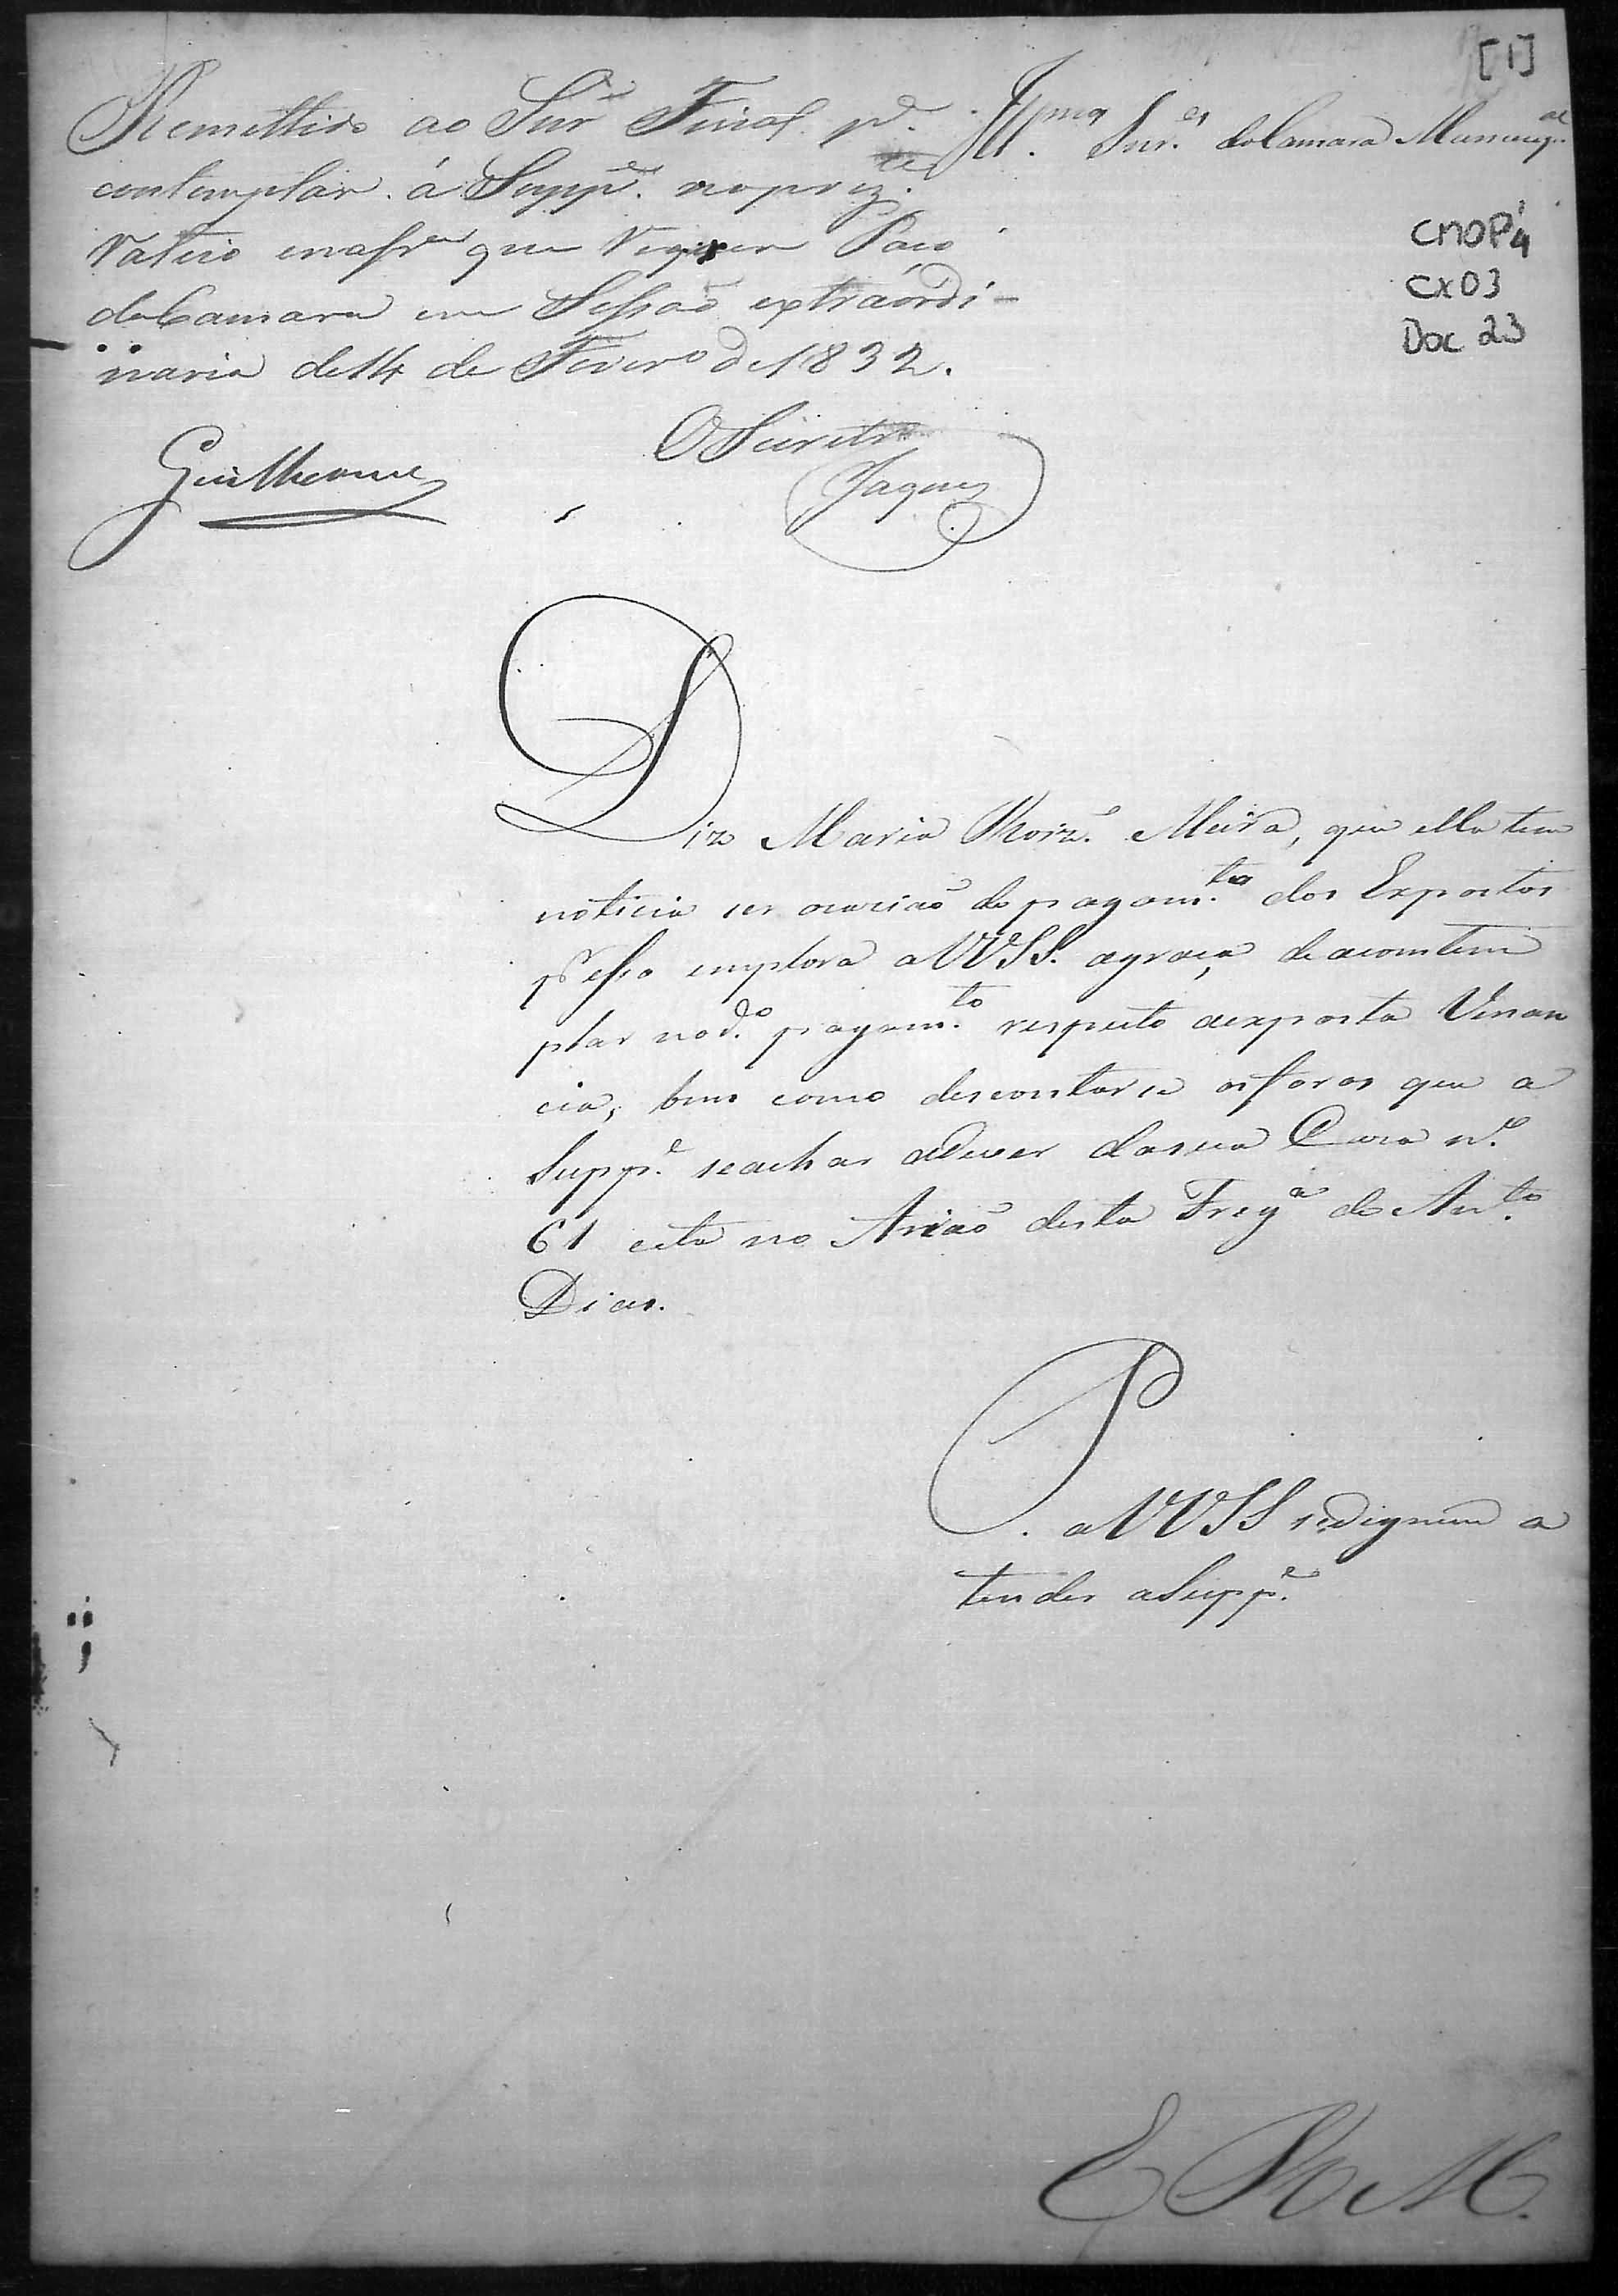 [1]
Remettido ao Snr Fiscal pª
contemplar á Suppe. no prez.te
Rateio e na fr.a que Requer Paço
da Camara em Sessaõ extraórdi-
naria de 14 de Fever.o de 1832.
O Secretr.o
Guilherme
Jaques
Ill.mos Snr.es da Camara Municip.al
CMOP
4
CX03
Doc 23
Diz Maria Roiz.e Meira, que ella tem
noticia ser ocaziaõ do pagam.to dos Expostos
p.r isso emplora a VVSS. agraça, de acomtem
plar no d.o pagam.to respeito aexposta Venan
cia, bem como descontarse osforos que a
Supp.e seachar adever dasua Caza n.o
61 cita no Ariaõ desta Freg.a de Ant.o
Dias.
P. a VVSS sedignem a
tender aSupp.e
E R M.